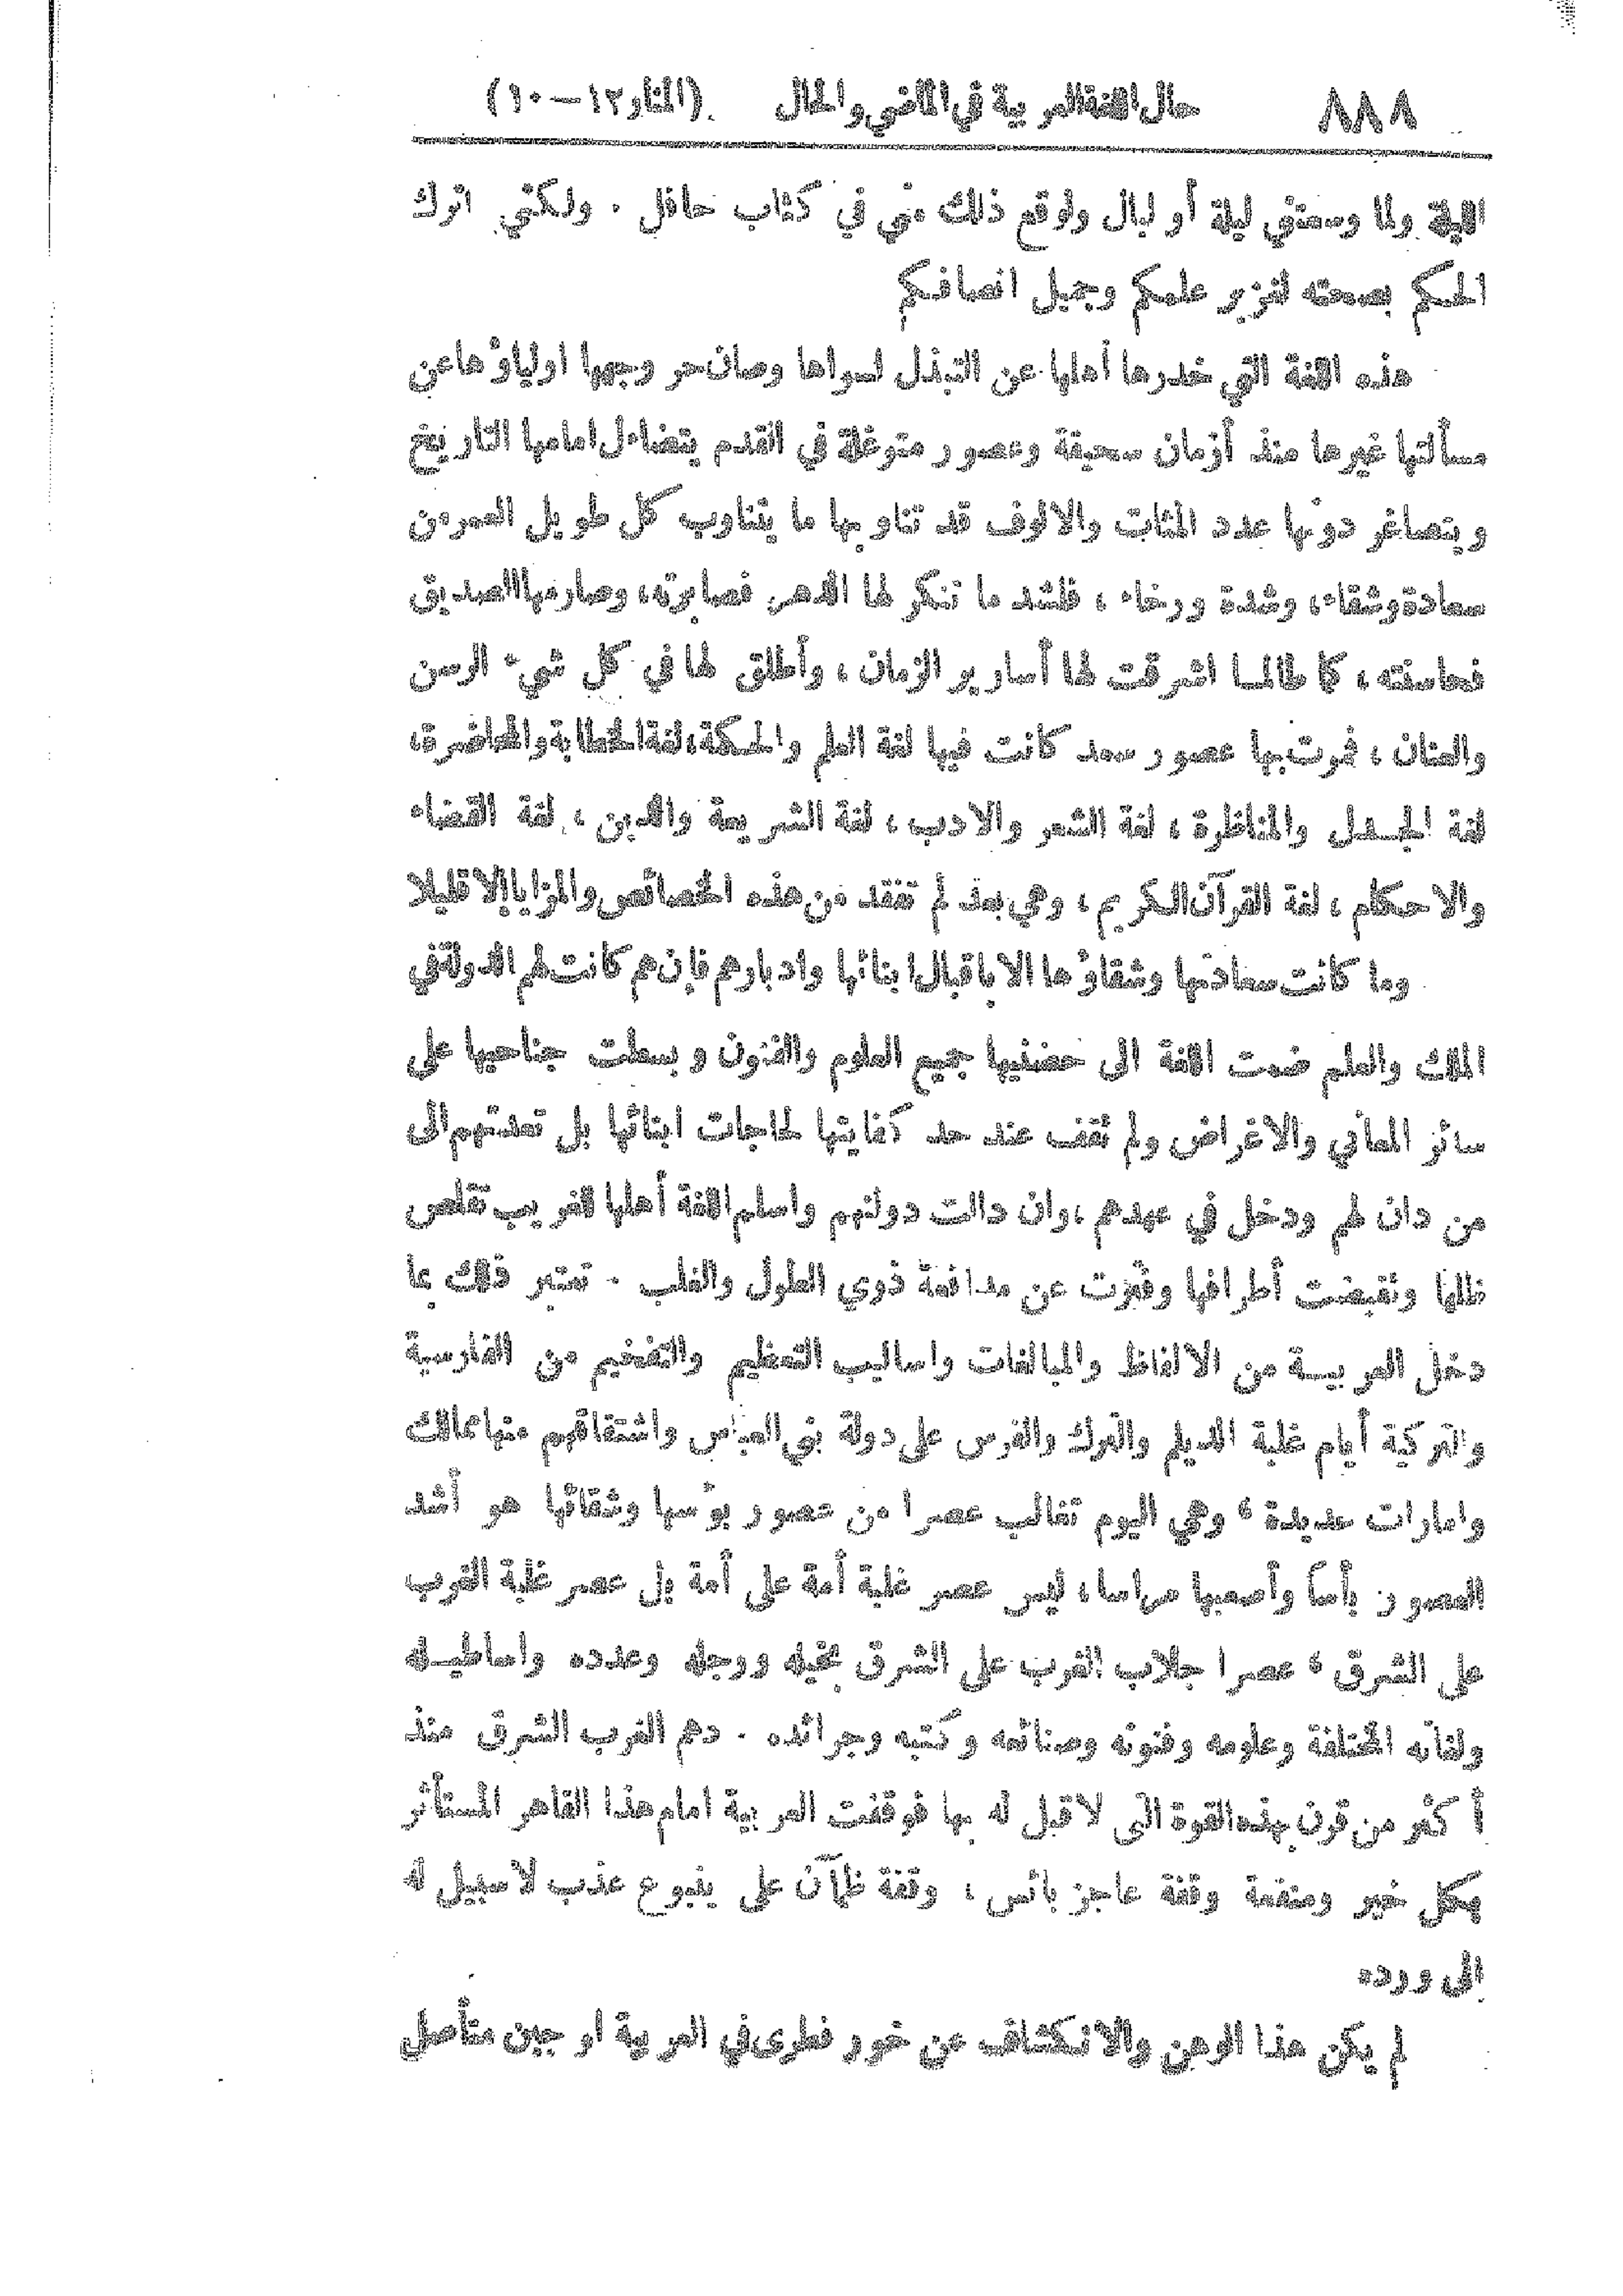 ٨٨٨ حال اللغة العربية في الماضي والحال (المنار ١٢–١٠)
الليلة ولما وسعتني ليلة أو ليال ولوقع ذلك مني في كتاب حافل . ولكني اترك
الحكم بصحته لغزير علمكم وجميل انصافكم
هذه اللغة التي خدرها أهلها عن التبذل لسواها وصان حر وجهها اولياؤها عن
مسألتها غيرها منذ أزمان سحيقة وعصور متوغلة في القدم يتضاءل امامها التاريخ
ويتصاغر دونها عدد المئات والالوف قد تناوبها ما يتناوب كل طويل العمر من
سعادة وشقاء، وشدة ورخاء ، فلشد ما تنكر لها الدهر فصابرته، وصارمها الصديق
فحاسنته ، كما طالما اشرقت لها أسارير الزمان ، وأطلق لها في كل شيء الرسن
والعنان ، فمرت بها عصور سعد كانت فيها لغة العلم والحكمة، لغة الخطابة والمحاضرة،
لغة الجدل والمناظرة ، لغة الشعر والادب ، لغة الشريعة والدين ، لغة القضاء
والاحكام ، لغة القرآن الكريم ، وهي بعد لم تفقد من هذه الخصائص والمزايا إلا قليلا
وما كانت سعادتها وشقاؤها الا باقبال ابنائها وادبارهم فإن هم كانت لهم الدولة في
الملك والعلم ضمت اللغة الى حضنيها جميع العلوم والفنون وبسطت جناحيها على
سائر المعاني والاغراض ولم تقف عند حد كفايتها لحاجات ابنائها بل تعدتهم الى
من دان لهم ودخل في عهدهم ، وان دالت دولتهم واسلم اللغة أهلها للغريب تقلص
ظلها وتقبضت أطرافها وعجزت عن مدافعة ذوي الطول والغلب . تعتبر ذلك بما
دخل العربية من الالفاظ والمبالغات واساليب التعظيم والتفخيم من الفارسية
والتركية أيام غلبة الديلم والترك والفرس على دولة بني العباس واشتقاقهم منها ممالك
وامارات عديدة ، وهي اليوم تغالب عصرا من عصور بؤسها وشقائها هو أشد
العصور بأسا وأصعبها مراسا ، ليس عصر غلبة أمة على أمة بل عصر غلبة الغرب
على الشرق ، عصرا جلاب الغرب على الشرق بخيله ورجله وعدده واساطيله
ولغاته المختلفة وعلومه وفنونه وصنائعه وكتبه وجرائده . دهم الغرب الشرق منذ
أكثر من قرن بهذه القوة التي لا قبل له بها فوقفت العربية امام هذا القاهر المستأثر
بكل خير ومنفعة وقفة عاجز بائس ، وقفة ظمآن على ينبوع عذب لا سبيل له
الى ورده
لم يكن هذا الوهن والانكشاف عن خور فطرى في العربية او جبن متأصل